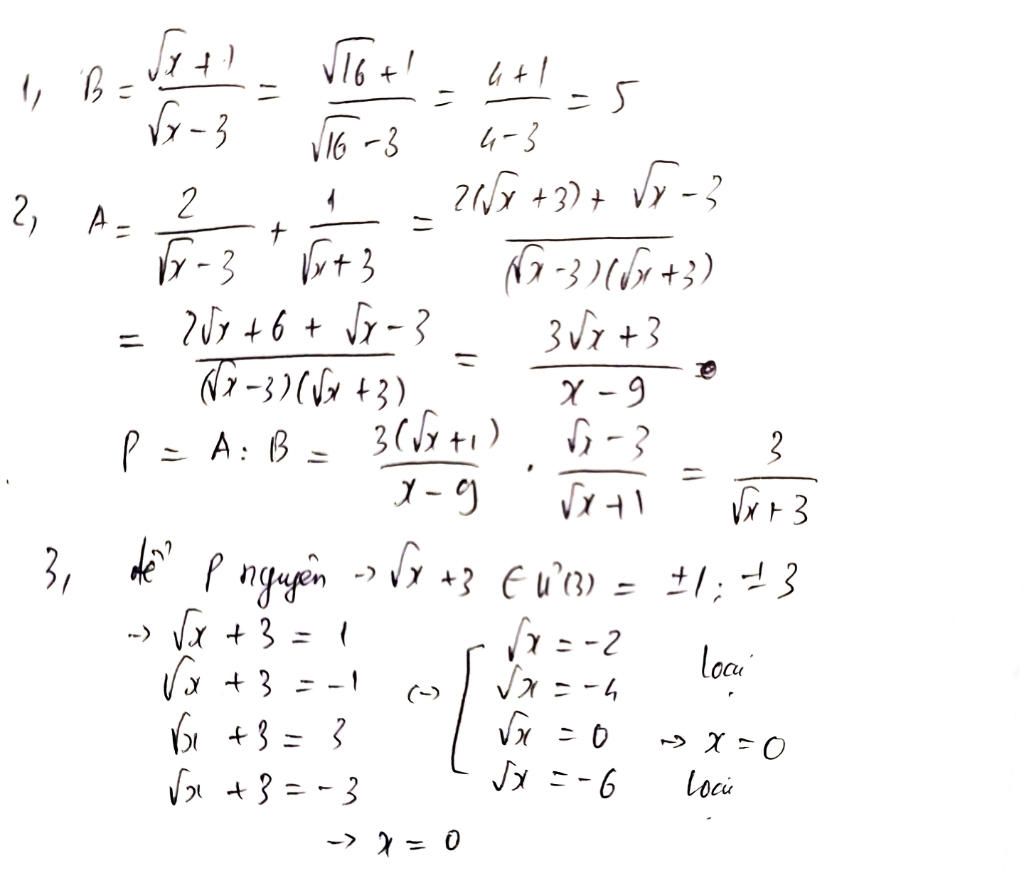 1, B = (√x + 1)/(√x - 3) = (√16 + 1)/(√16 - 3) = (4 + 1)/(4 - 3) = 5
2, A = 2/(√x - 3) + 1/(√x + 3) = (2(√x + 3) + √x - 3)/((√x - 3)(√x + 3))
= (2√x + 6 + √x - 3)/((√x - 3)(√x + 3)) = (3√x + 3)/(x - 9)
P = A : B = 3(√x + 1)/(x - 9) . (√x - 3)/(√x + 1) = 3/(√x + 3)
3, để P nguyên → √x + 3 ∈ Ư(3) = ±1; ±3
→ √x + 3 = 1 √x = -2 loại
√x + 3 = -1 (-) √x = -4
√x + 3 = 3 √x = 0 → x = 0
√x + 3 = -3 √x = -6 loại
→ x = 0